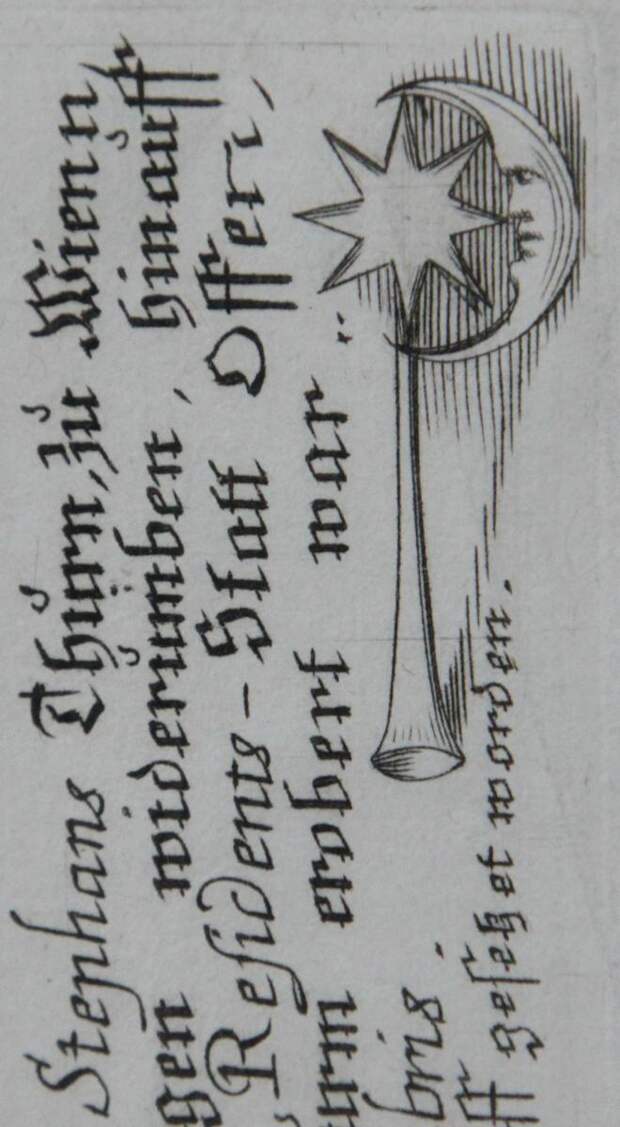 Stephans Thurn, zu Wienn
gen widerumben, hinauff
Residents-Statt
erobert war
bris.
ff gesetzet worden.